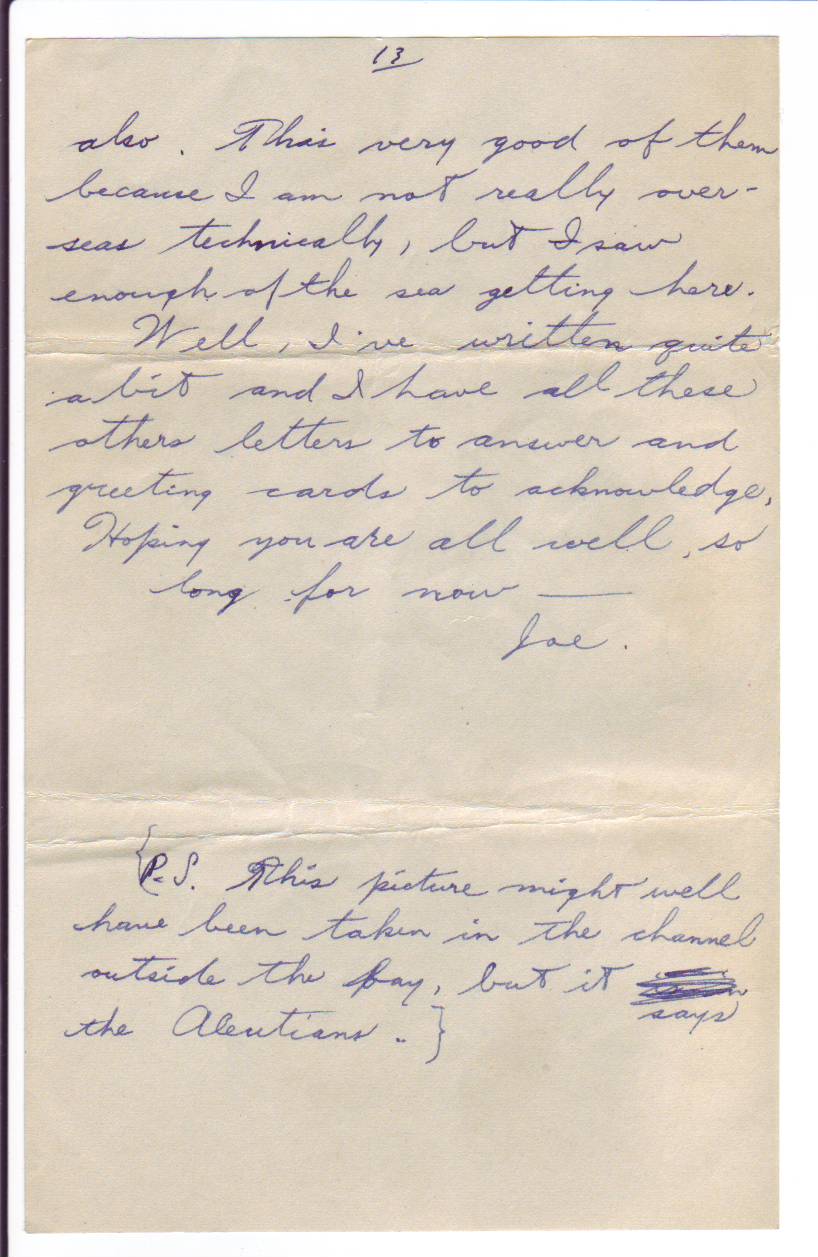 13
also. This very good of them
because I am not really over-
seas technically, but I saw
enough of the sea getting here.
Well, I've written quite
a bit and I have all these
others letters to answer and
greeting cards to acknowledge,
Hoping you are all well, so
long for now —
Joe.
{P.S. This picture might well
have been taken in the channel
outside the bay, but it
says
the Aleutians..}